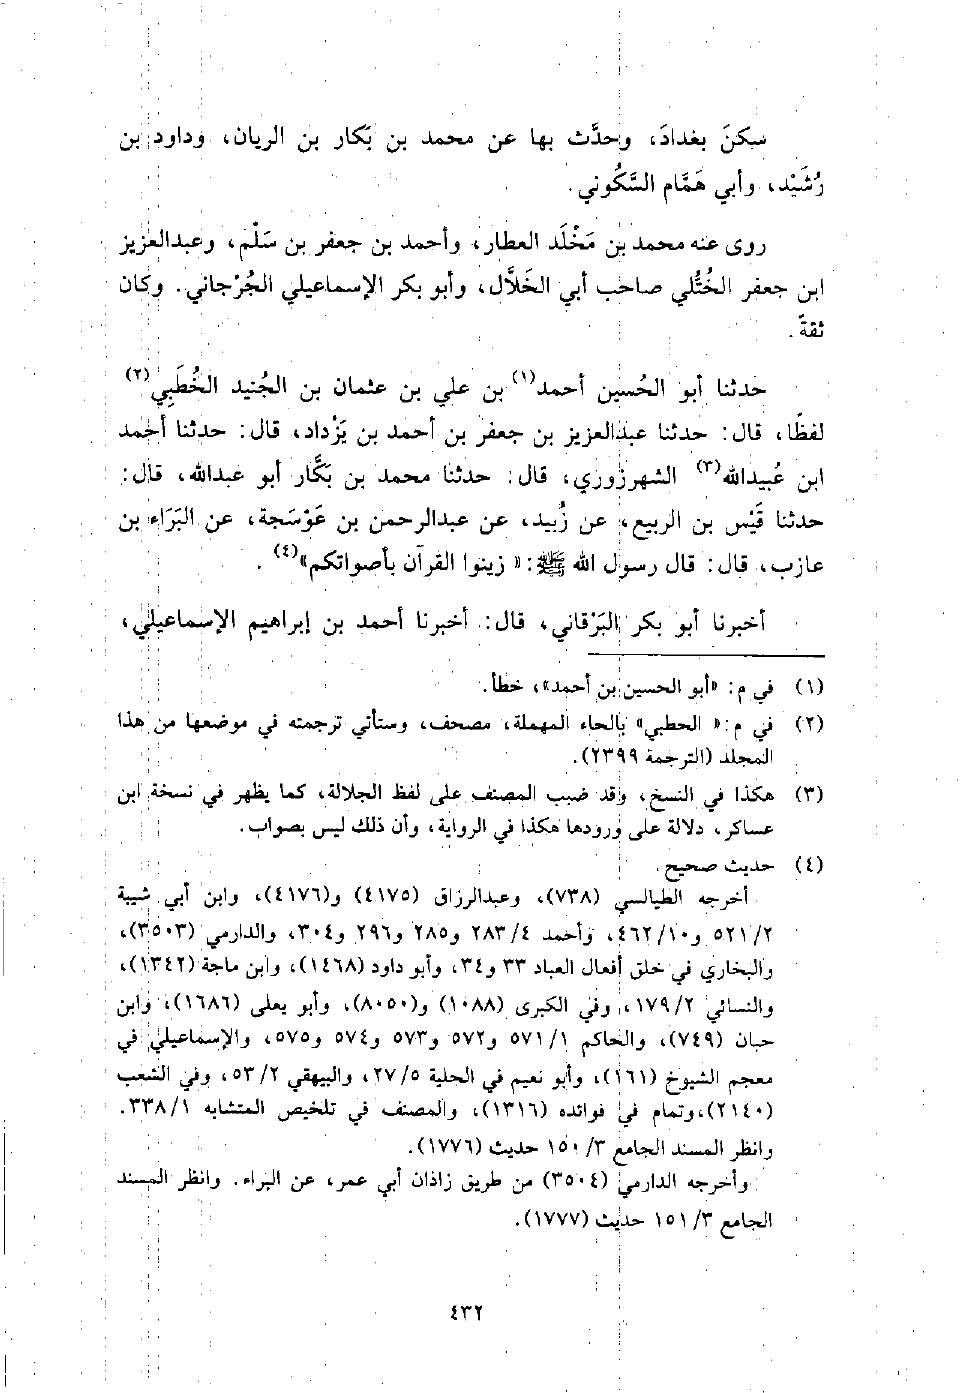 سكنَ بغدادَ، وحدَّث بها عن محمد بن بَكار بن الريان، وداود بن
رُشَيْد، وأبي هَمَّام السَّكُوني.
روى عنه محمد بن مَخْلَد العطار، وأحمد بن جعفر بن سَلْم، وعبدالعزيز
ابن جعفر الخُتُّلي صاحب أبي الخَلاَّل، وأبو بكر الإسماعيلي الجُرْجاني. وكان
ثقةً.
حدثنا أبو الحُسين أحمد(١) بن علي بن عثمان بن الجُنيد الخُطَبِي(٢)
لفظًا، قال: حدثنا عبدالعزيز بن جعفر بن أحمد بن يَزْداد، قال: حدثنا أحمد
ابن عُبيدالله(٣) الشهرزوري، قال: حدثنا محمد بن بَكَّار أبو عبدالله، قال:
حدثنا قَيْس بن الربيع، عن زُبيد، عن عبدالرحمن بن عَوْسَجة، عن البَرَاء بن
عازب، قال: قال رسول الله ﷺ: « زينوا القرآن بأصواتكم»(٤) .
أخبرنا أبو بكر البَرْقاني، قال: أخبرنا أحمد بن إبراهيم الإسماعيلي،
(١) في م: «أبو الحسين بن أحمد»، خطأ.
(٢) في م: « الحطبي» بالحاء المهملة، مصحف، وستأتي ترجمته في موضعها من هذا
المجلد (الترجمة ٢٣٩٩).
(٣) هكذا في النسخ، وقد ضبب المصنف على لفظ الجلالة، كما يظهر في نسخة ابن
عساكر، دلالة على ورودها هكذا في الرواية، وأن ذلك ليس بصواب.
(٤) حديث صحيح.
أخرجه الطيالسي (٧٣٨)، وعبدالرزاق (٤١٧٥) و(٤١٧٦)، وابن أبي شيبة
٢/ ٥٢١ و١٠/ ٤٦٢، وأحمد ٤/ ٢٨٣ و٢٨٥ و٢٩٦ و٣٠٤، والدارمي (٣٥٠٣)،
والبخاري في خلق أفعال العباد ٣٣ و٣٤، وأبو داود (١٤٦٨)، وابن ماجة (١٣٤٢)،
والنسائي ٢/ ١٧٩، وفي الكبرى (١٠٨٨) و(٨٠٥٠)، وأبو يعلى (١٦٨٦)، وابن
حبان (٧٤٩)، والحاكم ١/ ٥٧١ و٥٧٢ و٥٧٣ و٥٧٤ و٥٧٥، والإسماعيلي في
معجم الشيوخ (١٦١)، وأبو نعيم في الحلية ٥/ ٢٧، والبيهقي ٢/ ٥٣، وفي الشعب
(٢١٤٠)،وتمام في فوائده (١٣١٦)، والمصنف في تلخيص المتشابه ١/ ٣٣٨.
وانظر المسند الجامع ٣/ ١٥٠ حديث (١٧٧٦).
وأخرجه الدارمي (٣٥٠٤) من طريق زاذان أبي عمر، عن البراء. وانظر المسند
الجامع ٣/ ١٥١ حديث (١٧٧٧).
٤٣٢